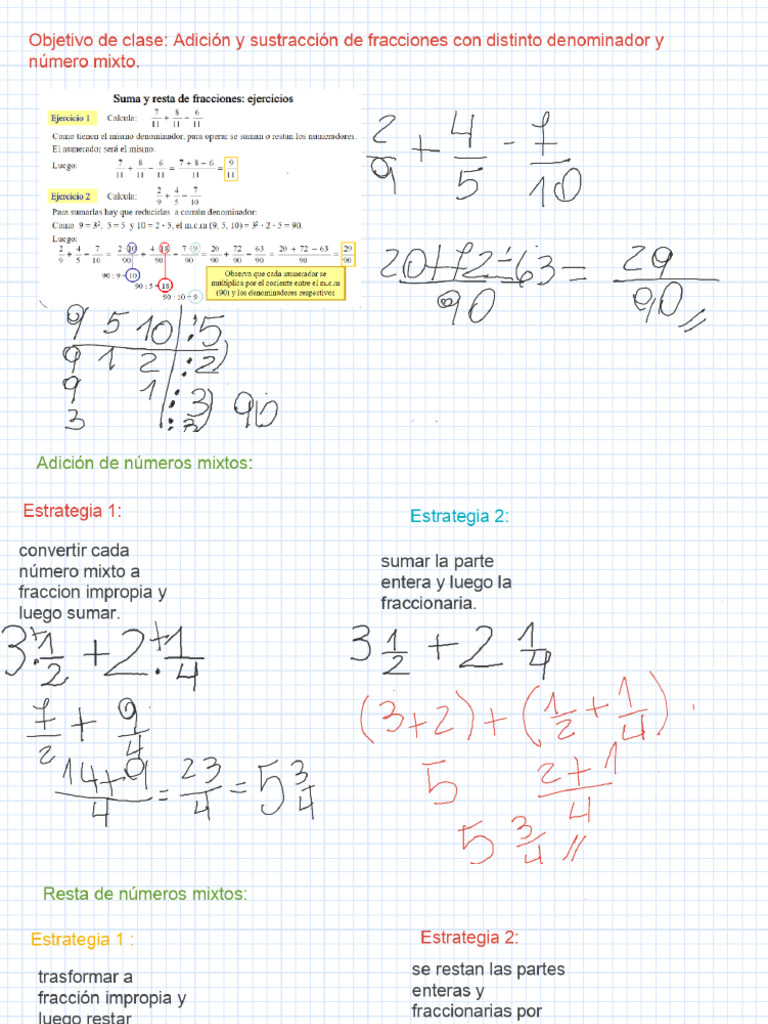 Objetivo de clase: Adición y sustracción de fracciones con distinto denominador y
número mixto.
Suma y resta de fracciones: ejercicios
Ejercicio 1 Calcula: 7/11 + 8/11 − 6/11
Como tienen el mismo denominador, para operar se suman o restan los numeradores.
El numerador será el mismo.
Luego: 7/11 + 8/11 − 6/11 = (7 + 8 − 6)/11 = 9/11
Ejercicio 2 Calcula: 2/9 + 4/5 − 7/10
Para sumarlas hay que reducirlas a común denominador:
Como 9 = 3², 5 = 5 y 10 = 2 · 5, el m.c.m (9, 5, 10) = 3² · 2 · 5 = 90.
Luego:
2/9 + 4/5 − 7/10 = 2·10/90 + 4·18/90 − 7·9/90 = 20/90 + 72/90 − 63/90 = (20 + 72 − 63)/90 = 29/90
90 : 9 = 10
90 : 5 = 18
90 : 10 = 9
Observa que cada numerador se
multiplica por el cociente entre el m.c.m
(90) y los denominadores respectivos
2/9 + 4/5 - 7/10
(20+72-63)/90 = 29/90 //
9 5 10 | :5
9 1 2 | :2
9 1 | :3
3 | :3 90
Adición de números mixtos:
Estrategia 1:
convertir cada
número mixto a
fraccion impropia y
luego sumar.
3 1/2 + 2 1/4
7/2 + 9/4
(14+9)/4 = 23/4 = 5 3/4
Estrategia 2:
sumar la parte
entera y luego la
fraccionaria.
3 1/2 + 2 1/4
(3+2) + (1/2 + 1/4).
5 (2+1)/4
5 3/4 //
Resta de números mixtos:
Estrategia 1 :
trasformar a
fracción impropia y
luego restar
Estrategia 2:
se restan las partes
enteras y
fraccionarias por